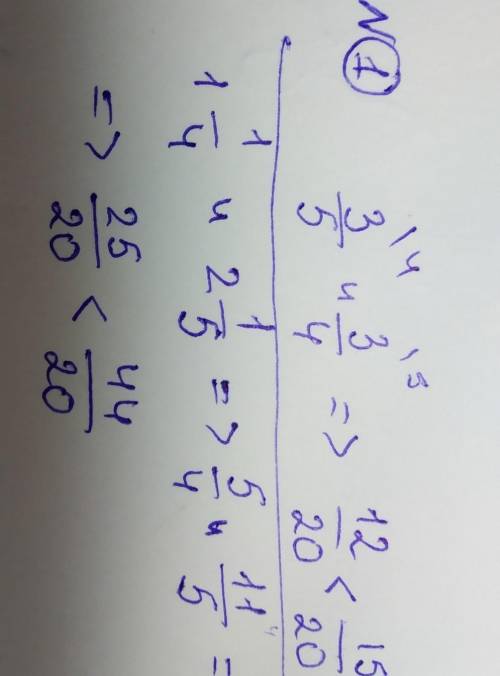 N 1
3/5 \4 и 3/4 \5 => 12/20 < 15/20
1 1/4 и 2 1/5 => 5/4 и 11/5 =
=> 25/20 < 44/20